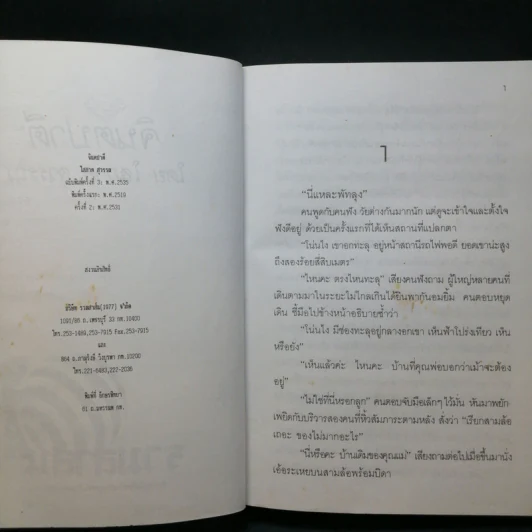 จินตปาตี
โสภาค สุวรรณ
ฉบับพิมพ์ครั้งที่ 3: พ.ศ.2535
พิมพ์ครั้งแรก: พ.ศ.2519
ครั้งที่ 2: พ.ศ.2531
สงวนลิขสิทธิ์
บริษัท รวมสาส์น(1977) จำกัด
ถ.เพชรบุรี 33 กท.10400
โทร.253-1489,253-7915 Fax.253-7915
และ
864 ถ.
โทร.221-6483,222-2038
พิมพ์ที่ อักษรพิทยา
61 ถ.
1
1
“นี่แหละพัทลุง”
คนพูดกับคนฟัง วัยต่างกันมากนัก แต่ดูจะเข้าใจและตั้งใจ
ฟังดีอยู่ ด้วยเป็นครั้งแรกที่ได้เห็นสถานที่แปลกตา
“โน่นไง เขาอกทะลุ อยู่หน้าสถานีรถไฟพอดี ยอดเขาน่ะสูง
ถึงสองร้อยสี่สิบเมตร”
“ไหนคะ ตรงไหนทะลุ” เสียงคนฟังถาม ผู้ใหญ่หลายคนที่
เดินตามมาในระยะไม่ไกลเกินได้ยินพากันอมยิ้ม คนตอบหยุด
เดิน ชี้มือไปข้างหน้าอธิบายซ้ำว่า
“โน่นไง มีช่องทะลุอยู่กลางอกเขา เห็นฟ้าโปร่งเทียว เห็น
หรือยัง”
“เห็นแล้วค่ะ ไหนคะ บ้านที่คุณพ่อบอกว่าเม้าจะต้อง
อยู่”
“ไม่ใช่ที่นี่หรอกลูก” คนตอบจับมือเล็กๆ ไว้มั่น หันมาพยัก
เพยิดกับบริวารสองคนที่หิ้วสัมภาระตามหลัง สั่งว่า “เรียกสามล้อ
เถอะ ของไม่มากอะไร”
“นี่หรือคะ บ้านเดิมของคุณแม่” เสียงถามต่อไปเมื่อขึ้นมานั่ง
เอ้อระเหยบนสามล้อพร้อมบิดา